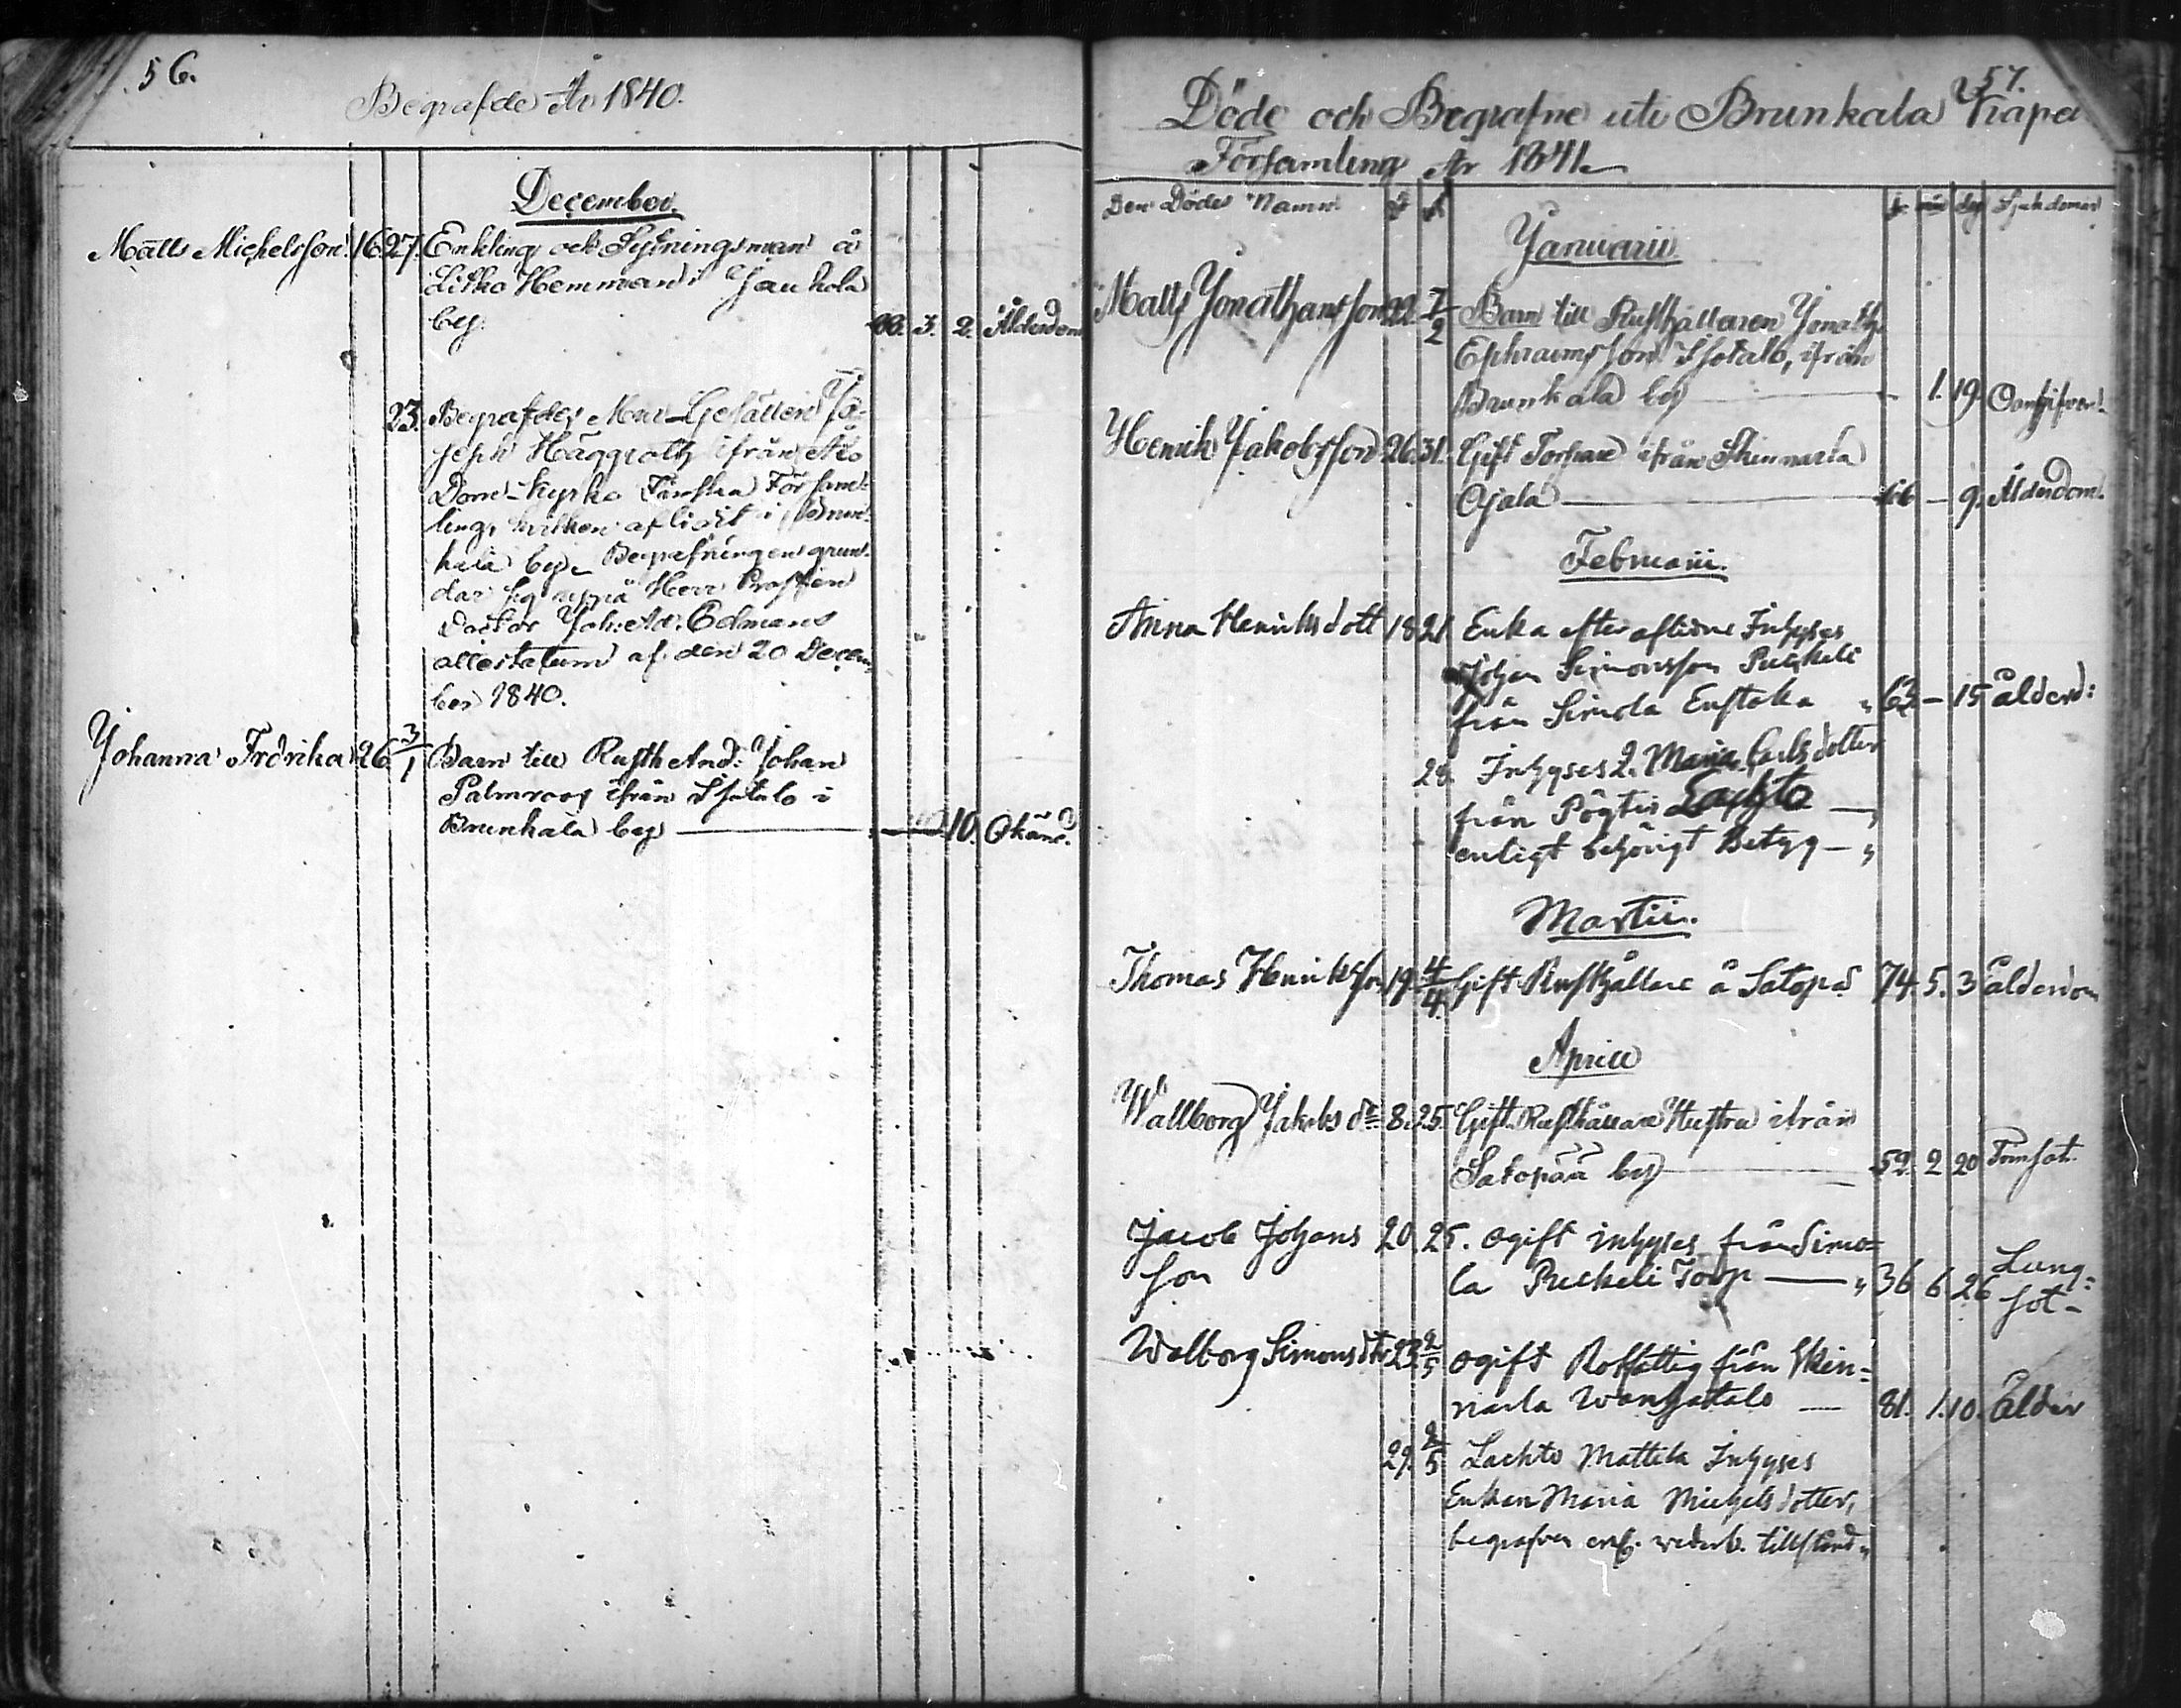 56.
Begrafde År 1840.
December.
Matts Michelsson. 16. 27. Enkling och Sytningsman å
Litko Hemman i Jauhola
by. 3. 2. Ålderdom
23. Begrafdes Mur-Gesällen Jo-
seph Häggroth ifrån Åbo
Dom-kyrko Finska Försam-
ling, hvilken aflidit i Brun-
kala by. Begrafningen grun-
dar sig uppå Herr Prosten
Doctor Joh: Ad. Edmans
attestatum af den 20 Decem-
ber 1840.
Johanna Fredrika 26. 3/1 Barn till Rusth And: Johan
Palmroos ifrån Isotalo i
Brunkala by — 10. Okänd.
57.
Döde och Begrafne uti Brunkala Kapel
Församling År 1841.
Den Dödes Namn. Sjukdomar
Januarii
Matts Jonathansson 22. 7/2 Barn till Rusthållaren Jonath:
Ephraimsson Isotalo, ifrån
Brunkala by — 1. 19. Oangifven.
Henrik Jakobsson 26. 31. Gift Torpare ifrån Skinnarla
Ojala — 66 — 9. Ålderdom.
Februarii.
Anna Henriksdott 18 21 Enka efter aflidne Inhyses
Johan Simonsson Puckeli
från Simola Enstaka " 63 — 15 ålderd:
28. Inhyses 2. Maria Carlsdotter
från Pögtis Lachto —
enligt behörigt Betyg — "
Martii.
Thomas Henriksson 19. 4/4. Gift Rusthållare å Satopä 74. 5. 3 ålderdom
Aprill
Wallborg Jakobs dr 8. 25. Gift Rusthållare Hustru ifrån
Satopää by — 59. 2 20 Tvinsot.
Jacob Johans 20. 25. ogift inhyses från Simo=
son la Puckeli Torp — " 36 6 26 Lung=
sot-
Walborg Simonsdtr 23. 2/5 ogift Rotfattig från Skin=
narla Wanhatalo — 81. 1. 10. Ålder
29. 2/5 Lachto Mattila Inhyses
Enkan Maria Michelsdotter,
begrafven enl. vederb. tillstånd "